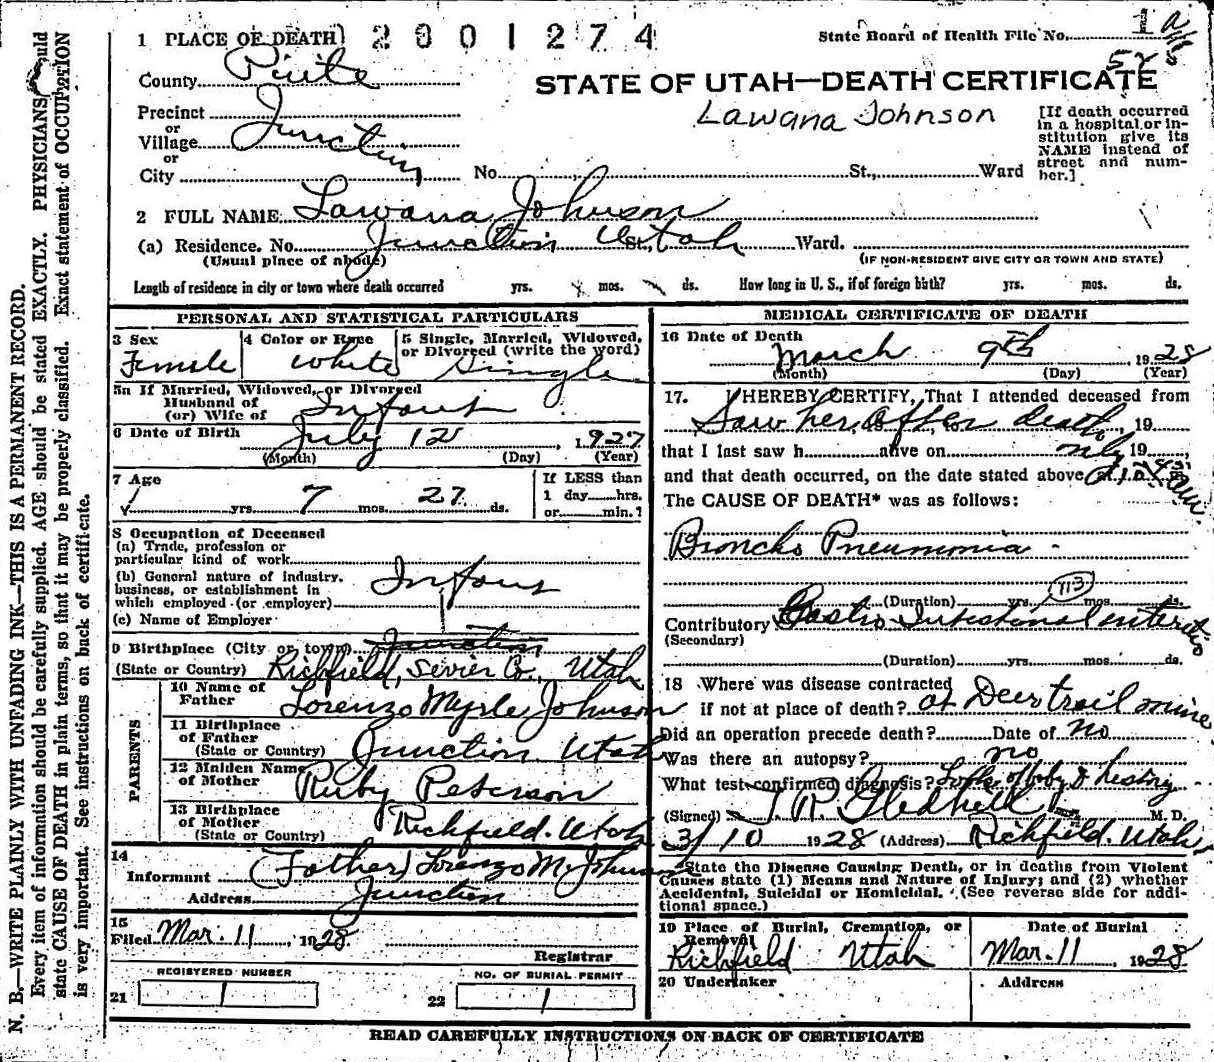 1 PLACE OF DEATH 2 0 0 1 2 7 4 State Board of Health File No. 1
County Piute
STATE OF UTAH—DEATH CERTIFICATE 52
Precinct
or
Village Junction
or
City No. St., Ward
Lawana Johnson
[If death occurred
in a hospital or in-
stitution give its
NAME instead of
street and num-
ber.]
2 FULL NAME Lawana Johnson
(a) Residence. No. Junction St., Utah Ward.
(Usual place of abode)
(IF NON-RESIDENT GIVE CITY OR TOWN AND STATE)
Length of residence in city or town where death occurred yrs. mos. ds. How long in U. S., if of foreign birth? yrs. mos. ds.
PERSONAL AND STATISTICAL PARTICULARS
3 Sex
Female
4 Color or Race
White
5 Single, Married, Widowed,
or Divorced (write the word)
Single
5a If Married, Widowed, or Divorced
Husband of
(or) Wife of Infant
6 Date of Birth July 12, 1927
(Month) (Day) (Year)
7 Age
yrs. 7 mos. 27 ds.
If LESS than
1 day hrs.
or min.?
8 Occupation of Deceased
(a) Trade, profession or
particular kind of work
(b) General nature of industry,
business, or establishment in
which employed (or employer) Infant
(c) Name of Employer
9 Birthplace (City or town) Junction
(State or Country) Richfield, Sevier Co., Utah
PARENTS
10 Name of
Father Lorenzo Myrle Johnson
11 Birthplace
of Father
(State or Country) Junction Utah
12 Maiden Name
of Mother Ruby Peterson
13 Birthplace
of Mother
(State or Country) Richfield. Utah
14
Informant (Father) Lorenzo M. Johnson
Address Junction
15
Filed Mar. 11, 1928
Registrar
REGISTERED NUMBER
21 1
NO. OF BURIAL PERMIT
22 1
MEDICAL CERTIFICATE OF DEATH
16 Date of Death
March 9th 1928
(Month) (Day) (Year)
17. I HEREBY CERTIFY, That I attended deceased from
Saw her after death 19
that I last saw h alive on only 19
and that death occurred, on the date stated above at
The CAUSE OF DEATH* was as follows:
Broncho Pneumonia
(Duration) yrs. 113 mos. ds.
Contributory Gastro Intestional enteritis
(Secondary)
(Duration) yrs. mos. ds.
18 Where was disease contracted
if not at place of death? at Deer trail mine
Did an operation precede death? Date of No
Was there an autopsy? no
What test confirmed diagnosis? Looks of baby & history
(Signed) J. R. Gledhill M. D.
3/10 1928 (Address) Richfield. Utah
*State the Disease Causing Death, or in deaths from Violent
Causes state (1) Means and Nature of Injury; and (2) whether
Accidental, Suicidal or Homicidal. (See reverse side for addi-
tional space.)
19 Place of Burial, Cremation, or
Removal
Richfield Utah
Date of Burial
Mar. 11, 1928
20 Undertaker
Address
READ CAREFULLY INSTRUCTIONS ON BACK OF CERTIFICATE
N. B.—WRITE PLAINLY WITH UNFADING INK—THIS IS A PERMANENT RECORD.
Every item of information should be carefully supplied. AGE should be stated EXACTLY. PHYSICIANS should
state CAUSE OF DEATH in plain terms, so that it may be properly classified. Exact statement of OCCUPATION
is very important. See instructions on back of certificate.